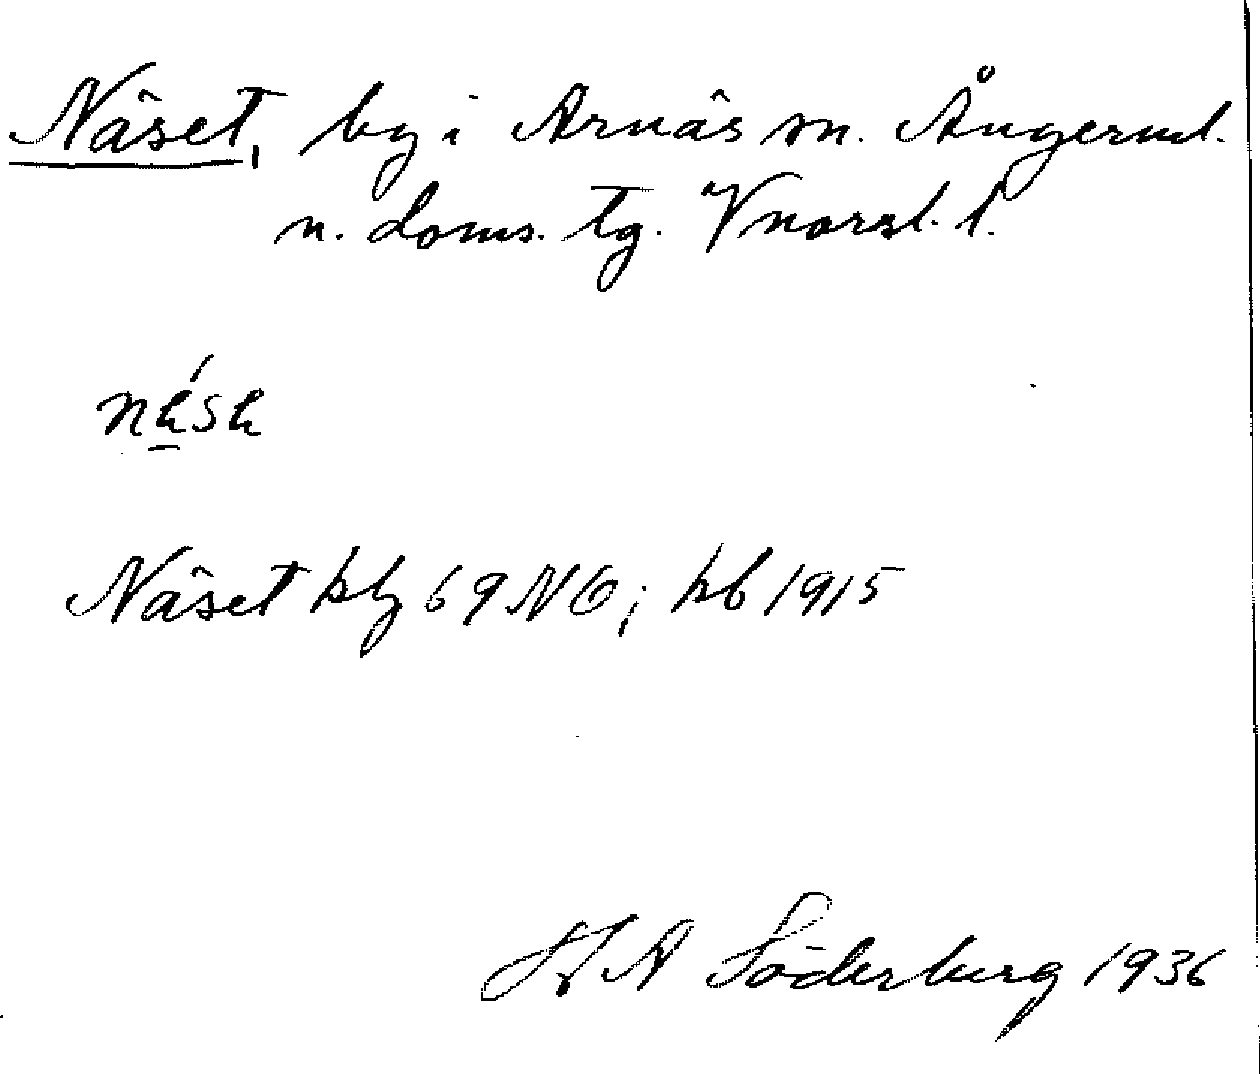 Näset, by i Arnäs sn. Ångerml.
n. doms. tg. Vnorrl. l.
Näset kbg 69 NO; kb 1915
H A Söderberg 1936